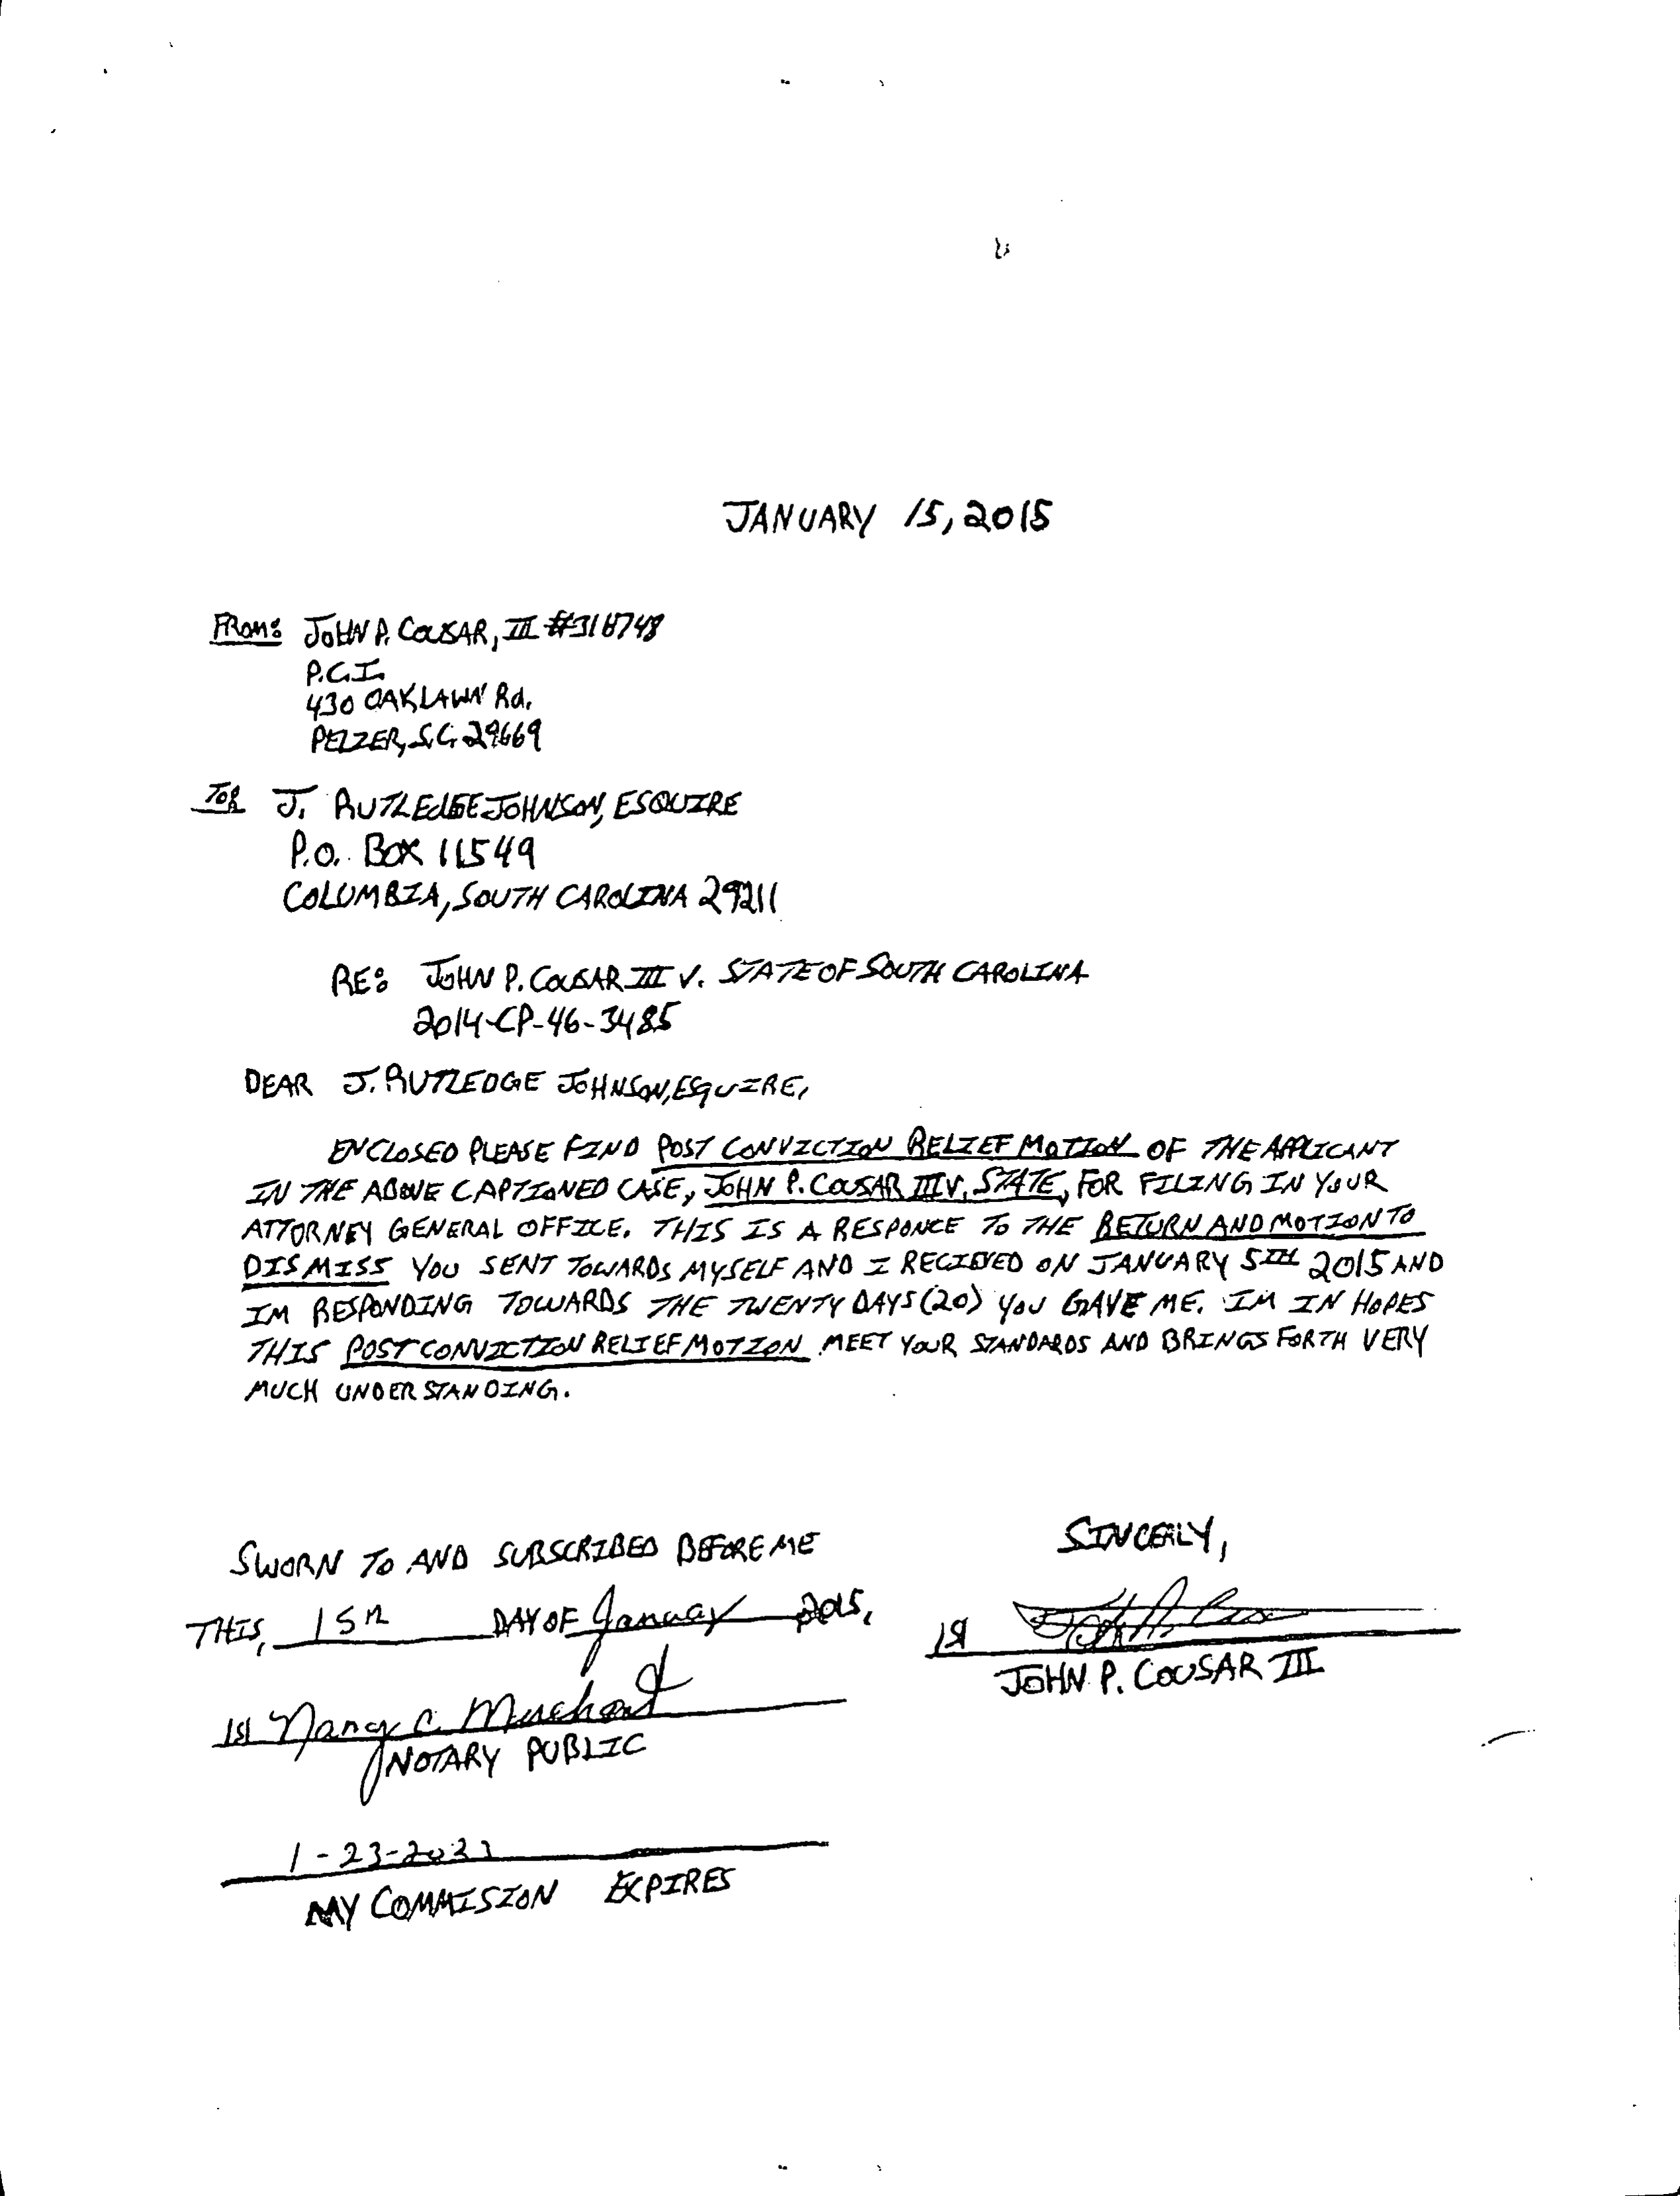 JANUARY 15, 2015
FROM: JOHN P. COUSAR, III #318748
P.C.I.
430 OAKLAWN Rd.
PELZER, S.C. 29669
TO: J. RUTLEDGE JOHNSON, ESQUIRE
P.O. BOX 11549
COLUMBIA, SOUTH CAROLINA 29211
RE: JOHN P. COUSAR III V. STATE OF SOUTH CAROLINA
2014-CP-46-3485
DEAR J. RUTLEDGE JOHNSON, ESQUIRE,
ENCLOSED PLEASE FIND POST CONVICTION RELIEF MOTION OF THE APPLICANT
IN THE ABOVE CAPTIONED CASE, JOHN P. COUSAR III V. STATE, FOR FILING IN YOUR
ATTORNEY GENERAL OFFICE. THIS IS A RESPONCE TO THE RETURN AND MOTION TO
DISMISS YOU SENT TOWARDS MYSELF AND I RECIEVED ON JANUARY 5TH 2015 AND
IM RESPONDING TOWARDS THE TWENTY DAYS (20) YOU GAVE ME. IM IN HOPES
THIS POST CONVICTION RELIEF MOTION MEET YOUR STANDARDS AND BRINGS FORTH VERY
MUCH UNDERSTANDING.
SINCERLY,
SWORN TO AND SUBSCRIBED BEFORE ME
THIS, 15th DAY OF January 2015,
/s/
JOHN P. COUSAR III
/s/ Nancy C. Merchant
NOTARY PUBLIC
1-23-2023
MY COMMISION EXPIRES